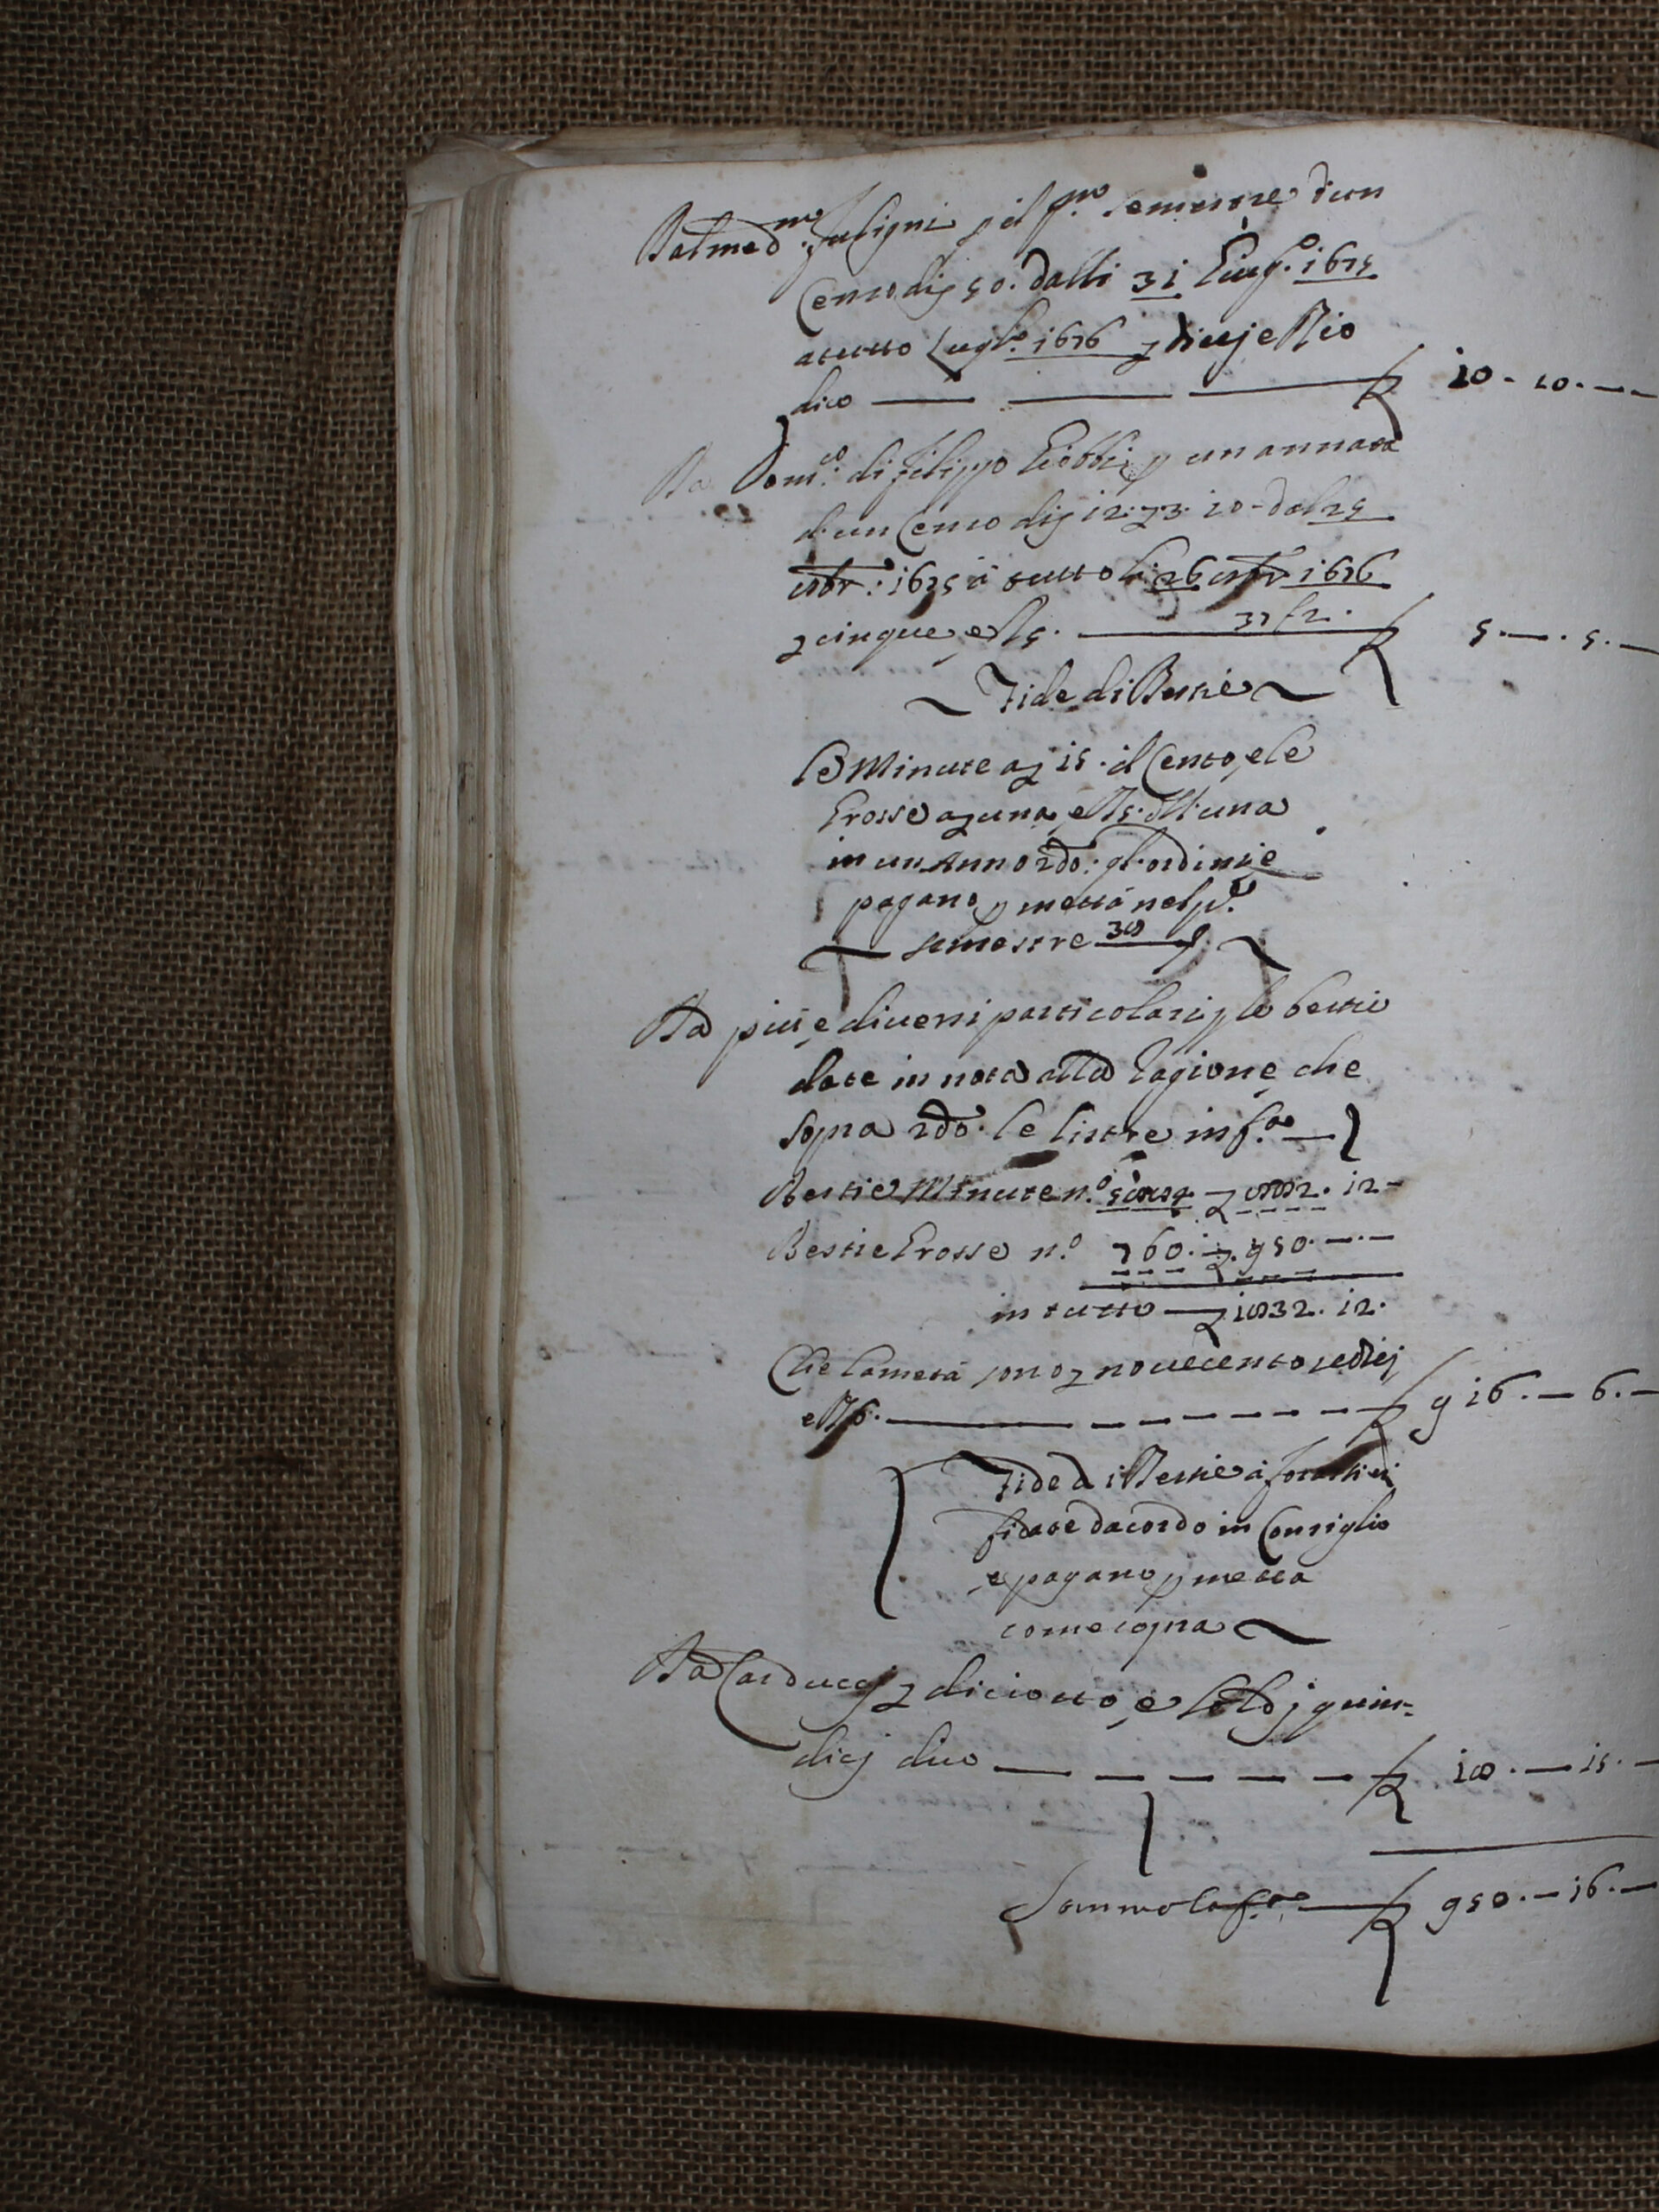 Dal med.mo Fuligni p il p.mo semestre d'un
Censo di 50. dalli 31 Giug.o 1675
a tutto Lugl.o 1676 dieje 10
dico 10 - 10. —
Da Dom.co di Filippo Giobbi p un annata
d'un Censo di 12. 3. 10 - dal 25
8br: 1675 à tutto li 26 8br 1676
cinque, e 5. 5. — . 5. —
~ Fide di Bestie ~
Le Minute a 15. il Cento, e le
Grosse a una, e 5. l'una
in un Anno 2do. gl'ordini, e
pagano p metà nel p.o
semestre 38
Da più, e diversi particolari p le bestie
date in nota alla ragione che
sopra 2do. le listre inf.e —
Bestie Minute n.o 882. 12 -
Bestie Grosse n.o 760. — 950. — . —
in tutto — 1832. 12.
Che la metà sono novecento sedicj
e 6. 916. — 6. —
Fide di Bestie à forastieri
fidate d'acordo in Consiglio
e pagano p metta
come sopra ~
Da Carduccj diciotto, e soldj quin-
dicj dico 18. — 15. —
Somma la f.a 950. — 16. —